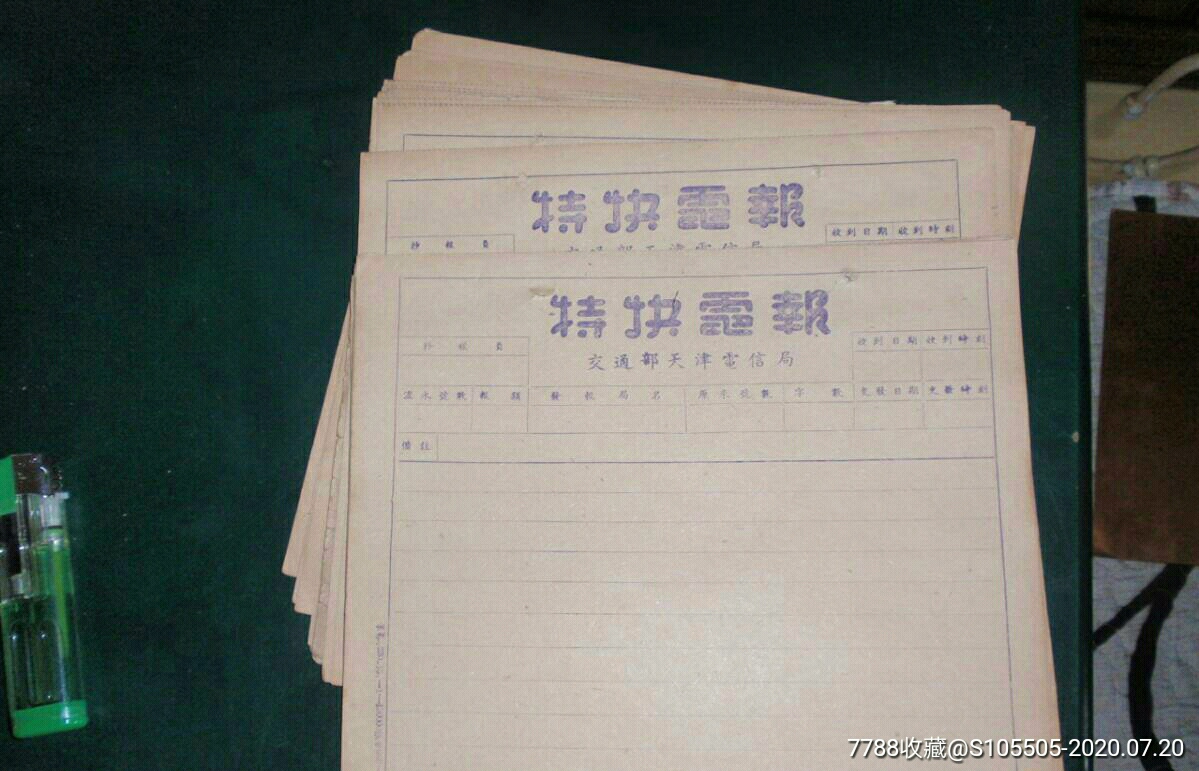 特快電報
抄報員
收到日期 收到時刻
交通部天津電信局
特快電報
交通部天津電信局
抄報員
收到日期 收到時刻
流水號數 報類 發報局名 原來號數 字數 交發日期 交發時刻
備註
7788收藏@S105505-2020.07.20